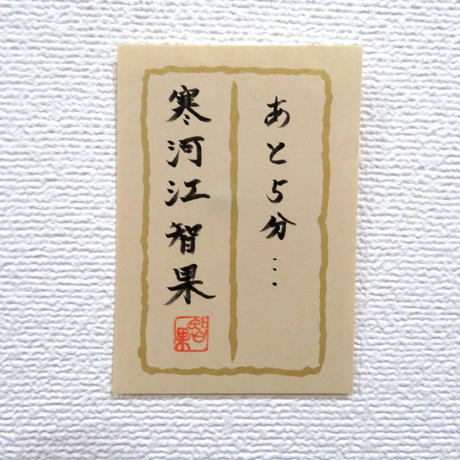 あと5分…
寒河江智果
智果